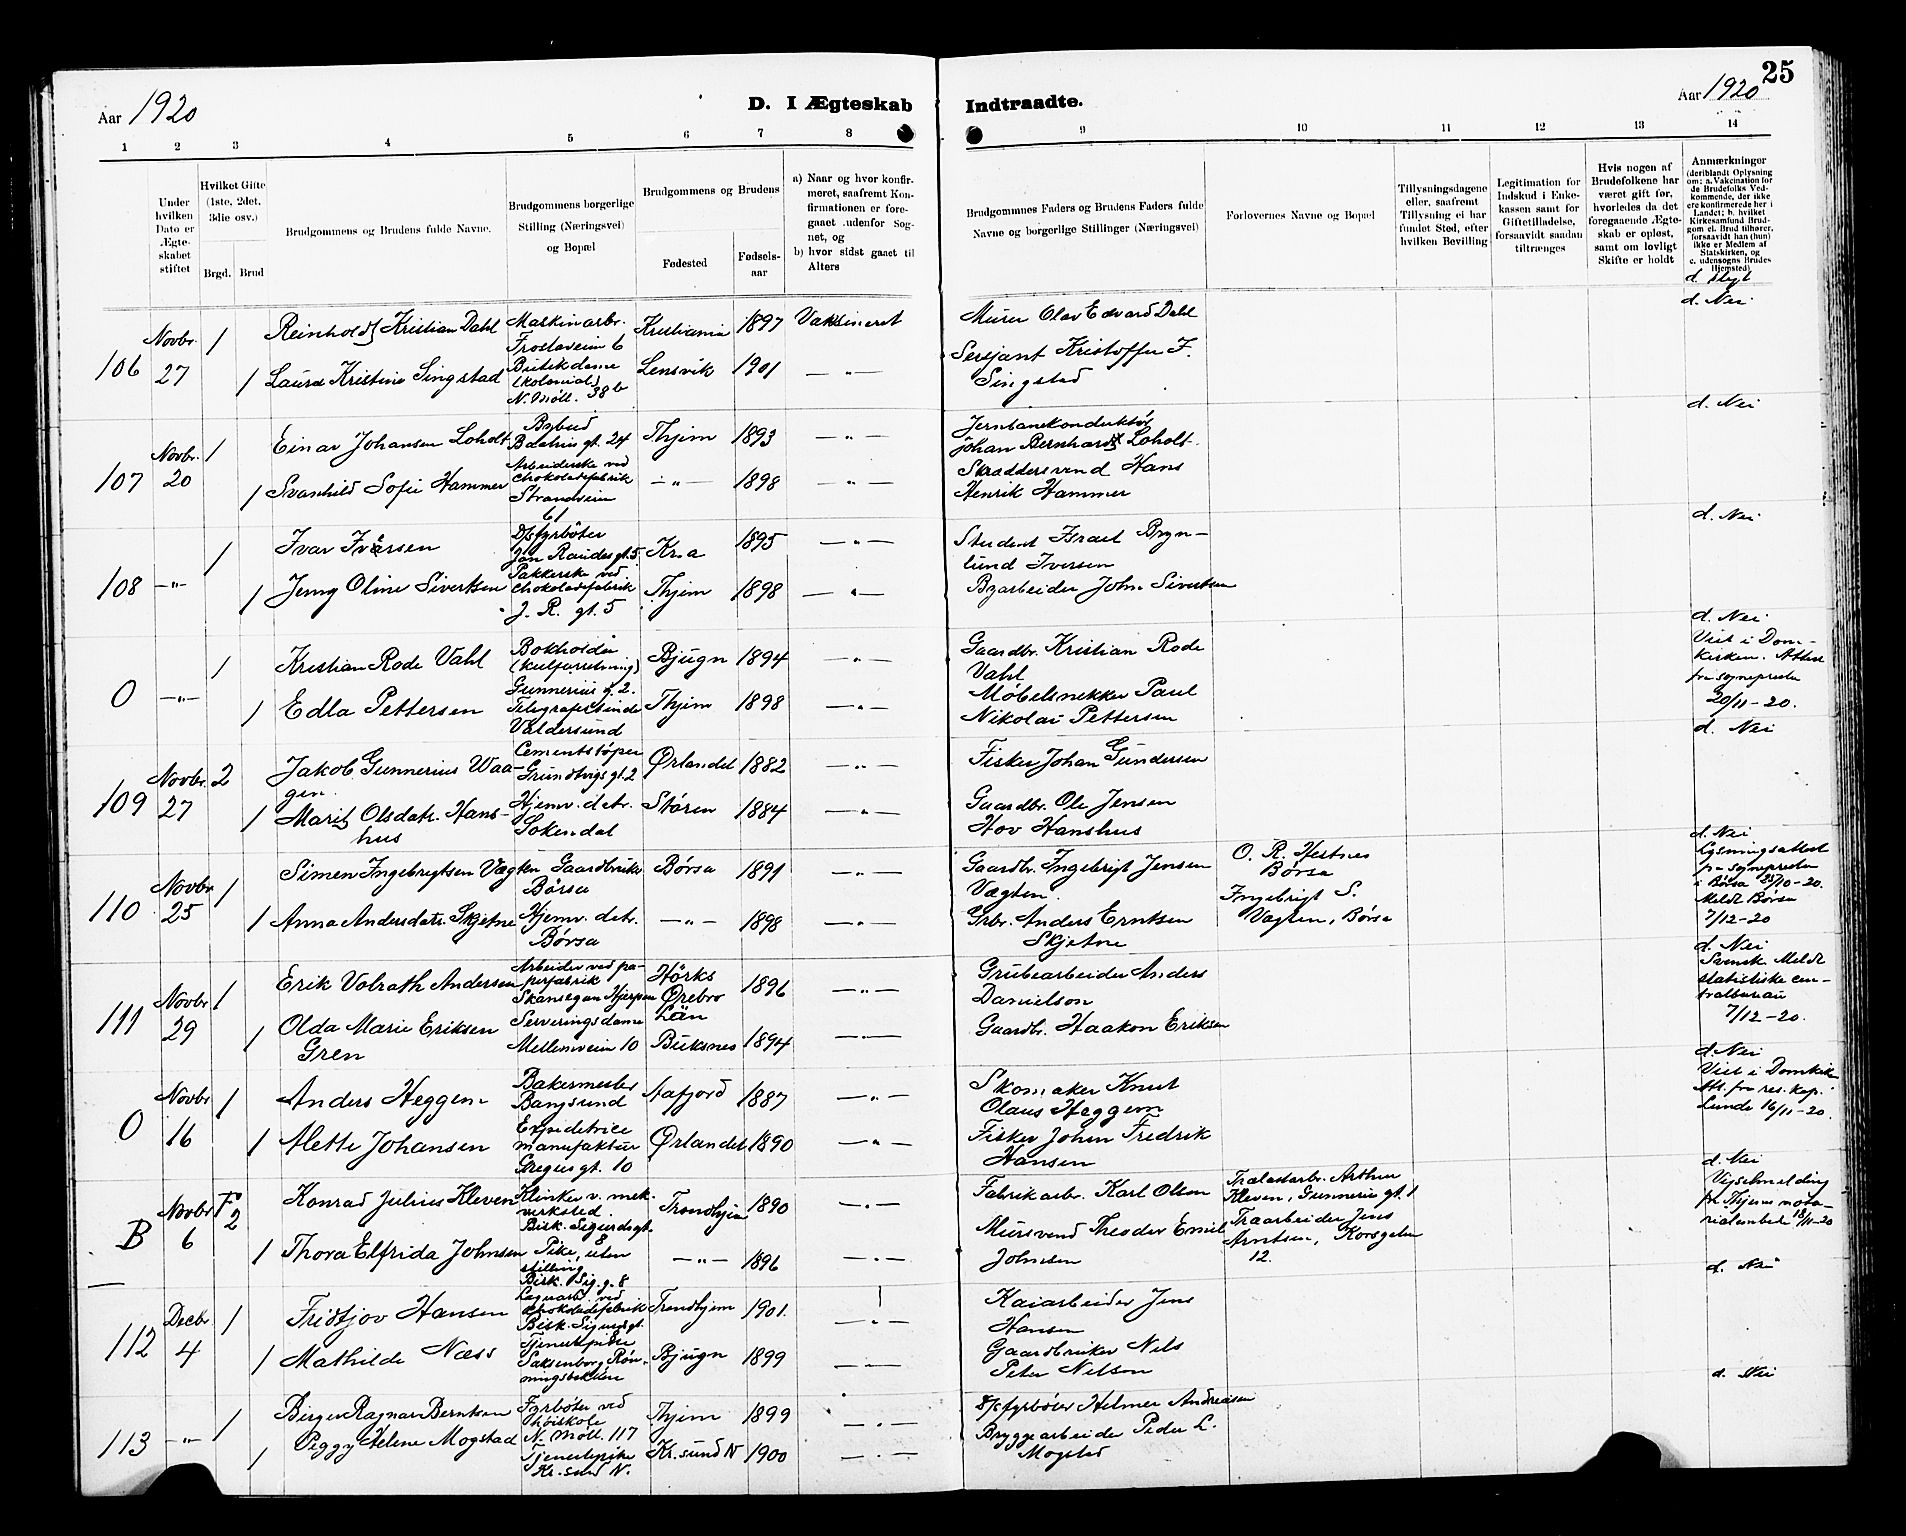 25
Aar 1920
D. I Ægteskab
Indtraadte.
Aar 1920
1 2 3 4 5 6 7 8 9 10 11 12 13 14
Under
hvilken
Dato er
Ægte-
skabet
stiftet
Hvilket Gifte
(1ste, 2det,
3die osv.)
Brgd. Brud
Brudgommens og Brudens fulde Navne.
Brudgommens borgerlige
Stilling (Næringsvei)
og Bopæl
Brudgommens og Brudens
Fødested
Fødsels-
aar
a) Naar og hvor konfir-
meret, saafremt Kon-
firmationen er fore-
gaaet udenfor Sog-
net, og
b) hvor sidst gaaet til
Alters
Brudgommnes Faders og Brudens Faders fulde
Navne og borgerlige Stillinger (Næringsvei)
Forlovernes Navne og Bopæl
Tillysningsdagene
eller, saafremt
Tillysning ei har
fundet Sted, efter
hvilken Bevilling
Legitimation for
Indskud i Enke-
kassen samt for
Giftetilladelse,
forsaavidt saadan
tiltrænges
Hvis nogen af
Brudefolkene har
været gift før,
hvorledes da det
foregaaende Ægte-
skab er opløst,
samt om lovligt
Skifte er holdt
Anmærkninger
(deriblandt Oplysning
om: a. Vakcination for
de Brudefolks Ved-
kommende, der ikke
ere konfirmerede her i
Landet; b. hvilket
Kirkesamfund Brud-
gom el. Brud tilhører,
forsaavidt han (hun)
ikke er Medlem af
Statskirken, og
c. udensogns Brudes
Hjemsted)
106
Novbr.
27
1
Reinhold Kristian Dahl
Maskinarbr.
Frostaveien 6
Kristiania
1897
Vaksineret
Murer Olav Edvard Dahl
d. Nei
1
Laura Kristine Singstad
Butikdame
(kolonial)
N. Möll. 38b
Lensvik
1901
— " —
Sersjant Kristoffer F.
Singstad
107
Novbr.
20
1
Einar Johansen Loholt
Bybud
gt. 24
Thjem
1893
— " —
Jernbanekonduktör
Johan Bernhard Loholt
d. Nei
1
Svanhild Sofie Hammer
Arbeiderske ved
chokoladefabrik
Strandveien
61
— " —
1898
— " —
Skræddersvend Hans
Henrik Hammer
108
— " —
1
Ivar Iversen
D/S fyrböter
Jon Raudes gt. 5
Kr.a
1895
— " —
Student Israel Bryn-
lund Iversen
d. Nei
1
Jenny Oline Sivertsen
Pakkerske ved
chokoladefabrik
J. R. gt. 5
Thjem
1898
— " —
Byarbeider John Sivertsen
O
— " —
1
Kristian Rode Vahl
Bokholder
(kulforretning)
Gunnerius g. 2.
Bjugn
1894
— " —
Gaardbr. Kristian Rode
Vahl
d. Nei
Viet i Dom-
kirken. Attest
fra sogneprsten
20/11-20.
1
Edla Pettersen
Telegrafistinde
Valdersund
Thjem
1898
— " —
Möbelsnekker Paul
Nikolai Pettersen
109
Novbr.
27
2
Jakob Gunnerius Waa-
gen
Cementstöper
Grundtvigs gt. 2
Ørlandet
1882
— " —
Fisker Johan Gundersen
d. Nei
1
Marit Olsdatr. Hans-
hus
Hjemv. datr.
Sokendal
Stören
1884
— " —
Gaardbr. Ole Jensen
Hov Hanshus
110
Novbr.
25
1
Simen Ingebrigtsen Vægten
Gaardbruker
Börsa
Börsa
1891
— " —
Gaardbr. Ingebrigt Jensen
Vægten
O. R. Hestnes
Börsa
d. Nei
Lysningsattest
fra sogneprsten
i Börsa 25/10-20.
Meldt Börsa
7/12-20
1
Anna Andersdatr. Skjetne
Hjemv. datr.
Börsa
— " —
1898
— " —
Grbr. Anders Erntsen
Skjetne
Ingebrigt S.
Vægten, Börsa
111
Novbr
29
1
Erik Volrath Andersen
Arbeider ved pa-
pirfabrik
Hörks
Örebro
Län
1896
— " —
Grubearbeider Anders
Danielson
d. Nei
Svensk. Meldt
statistiske cen-
tralbureau
7/12-20.
1
Olda Marie Eriksen
Gren
Serveringsdame
Mellemveien 10
Buksnes
1894
— " —
Gaardbr. Haakon Eriksen
O
Novbr
16
1
Anders Heggem
Bakermester
Bangsund
Aafjord
1887
— " —
Skomaker Knut
Olaus Heggem
d. Nei
Viet i Domkirk.
Att. fra res. kap.
Lunde 16/11-20.
1
Alette Johansen
Expeditrice
manufaktur
gt. 10
Ørlandet
1890
— " —
Fisker Johan Fredrik
Hansen
B
Novbr
6
F
2
Konrad Julius Kleven
Klinker v. mek.
verksted.
Bisk. Sigurdsgt.
8
Trondhjem
1890
— " —
Fabrikarbr. Karl Olsen
Trælastarbr. Arthur
Kleven, Gunnerius gt. 1
d. Nei
Vigselmelding
fra Thjems nota-
rialembede 18/11-20
1
Thora Elfrida Johnsen
Pike, uten
stilling
Bisk. Sig. g. 8
— " —
1896
— " —
Mursvend Theodor Emil
Johnsen
Traarbeider Jens
Arntsen, Korsgaten
12.
112
Decbr
4
1
Fridtjov Hansen
Lagerarb. ved
chokoladefabrik
Bisk. Sigurdsgt.
Trondhjem
1901.
— " —
Kaiarbeider Jens
Hansen
d. Nei
1
Mathilde Næss
Tjenestepike
Saksenborg Rön-
ningsbakken
Bjugn
1899
— " —
Gaardbruker Nils
Peter Nelson
113
— " —
1
Birger Ragnar Berntsen
Fyrböter ved
höiskole
N. Möll. 117
Thjem
1899
— " —
S/S fyrböter Helmer Andreasen
d. Nei
1
Peggy Helene Mogstad
Tjenestepike
Kr. sund N.
Kr. sund N
1900
— " —
Bryggearbeider Peder L.
Mogstad